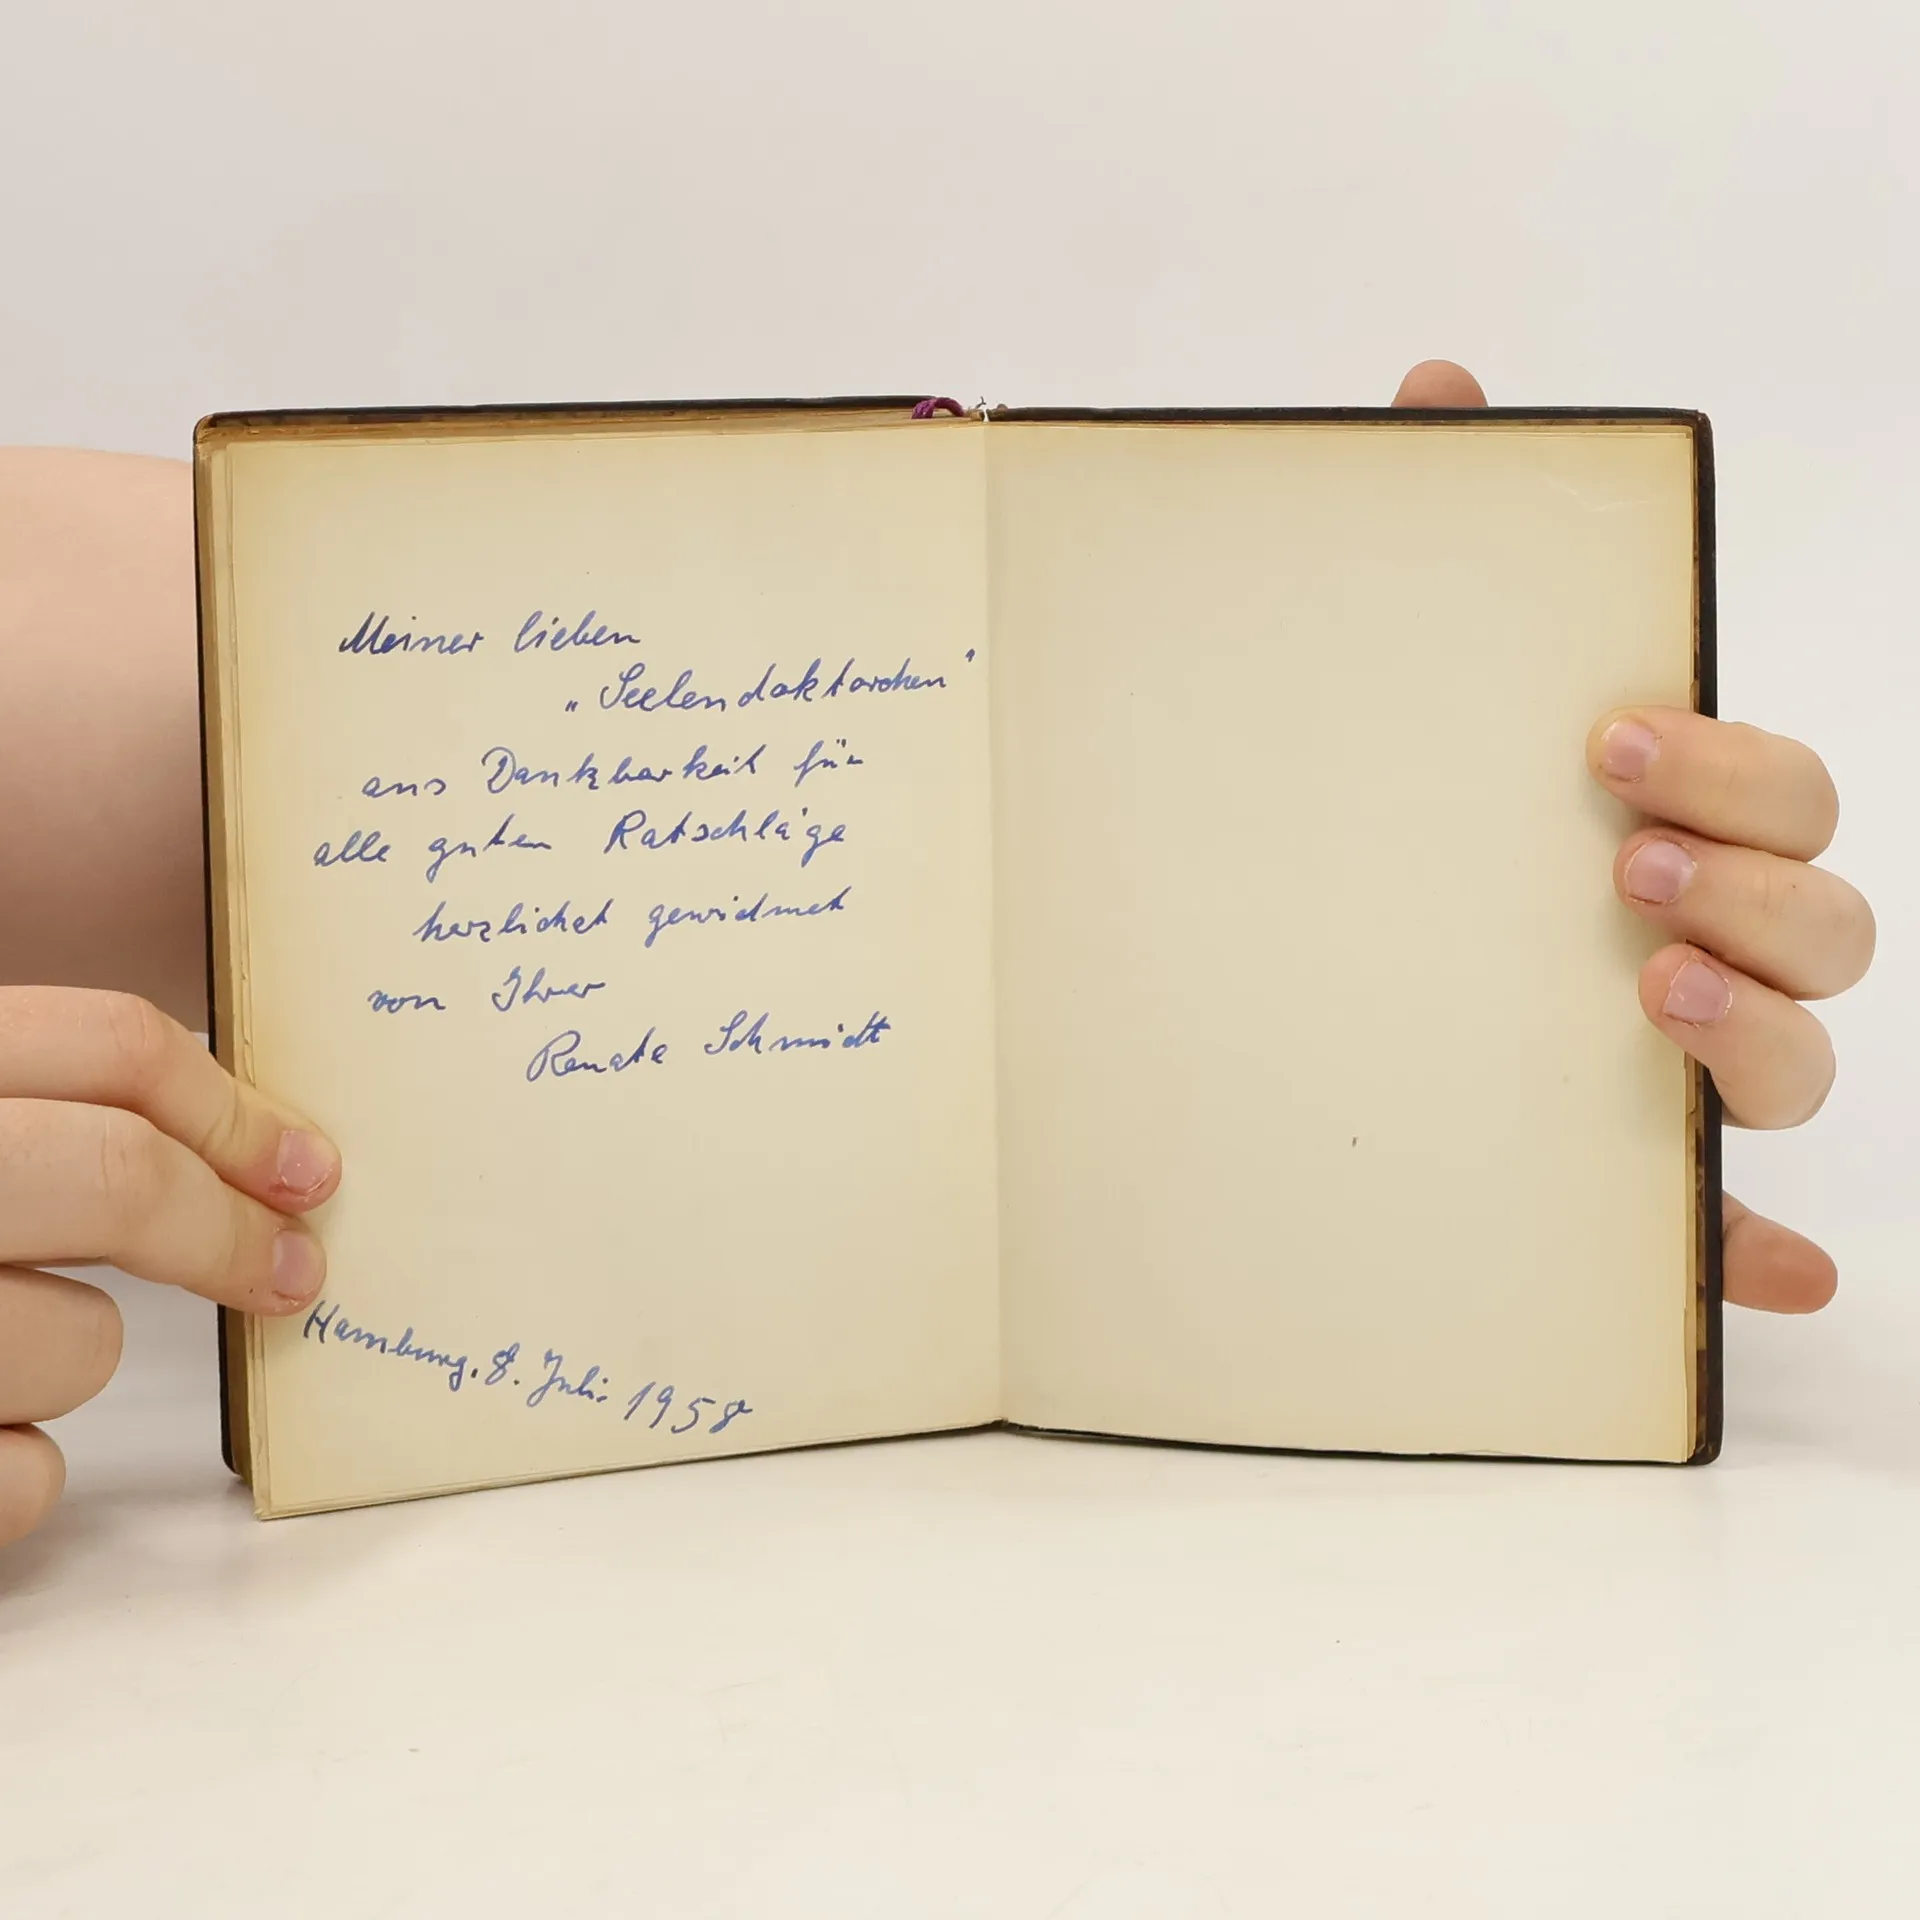 Meiner lieben
„Seelendoktorchen"
aus Dankbarkeit für
alle guten Ratschläge
herzlichst gewidmet
von Ihrer
Renate Schmidt
Hamburg, 8. Juli 1958